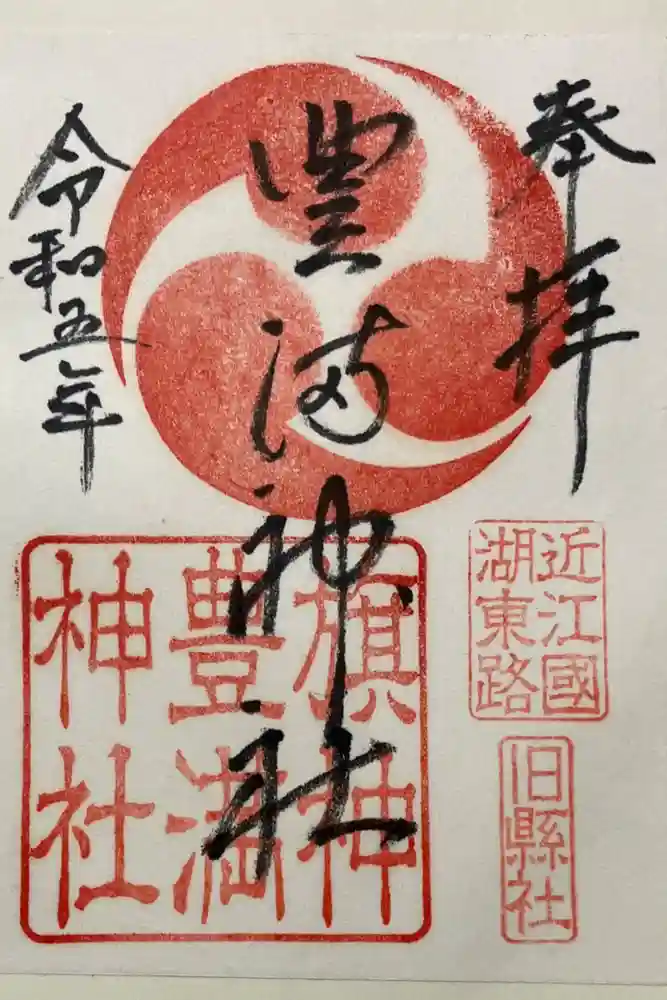 奉拝
豊満神社
令和五年
旗神
豊満
神社
近江國
湖東路
旧縣社